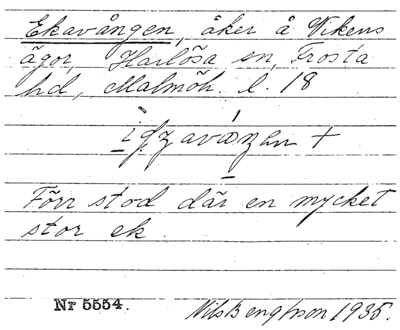 Ekavången, åker å Vikens
ägor, Harlösa sn, Frosta
hd, Malmöh. l. 18
Förr stod där en mycket
stor ek.
Nr 5554. Nils Bengtsson 1935.